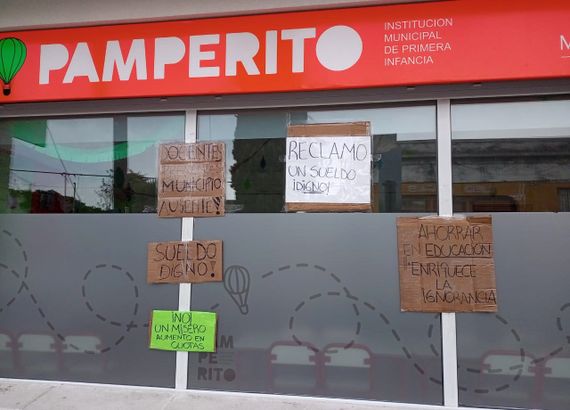 PAMPERITO
INSTITUCION
MUNICIPAL
DE PRIMERA
INFANCIA
M
DOCENTE
MUNICIPIO
RECLAMO
UN SUELDO
¡DIGNO!
SUELDO
DIGNO!
AHORRAR
EN EDUCACIÓN
ENRIQUECE
LA
IGNORANCIA
¡NO!
UN MISERO
AUMENTO EN
CUOTAS
PE
RITO